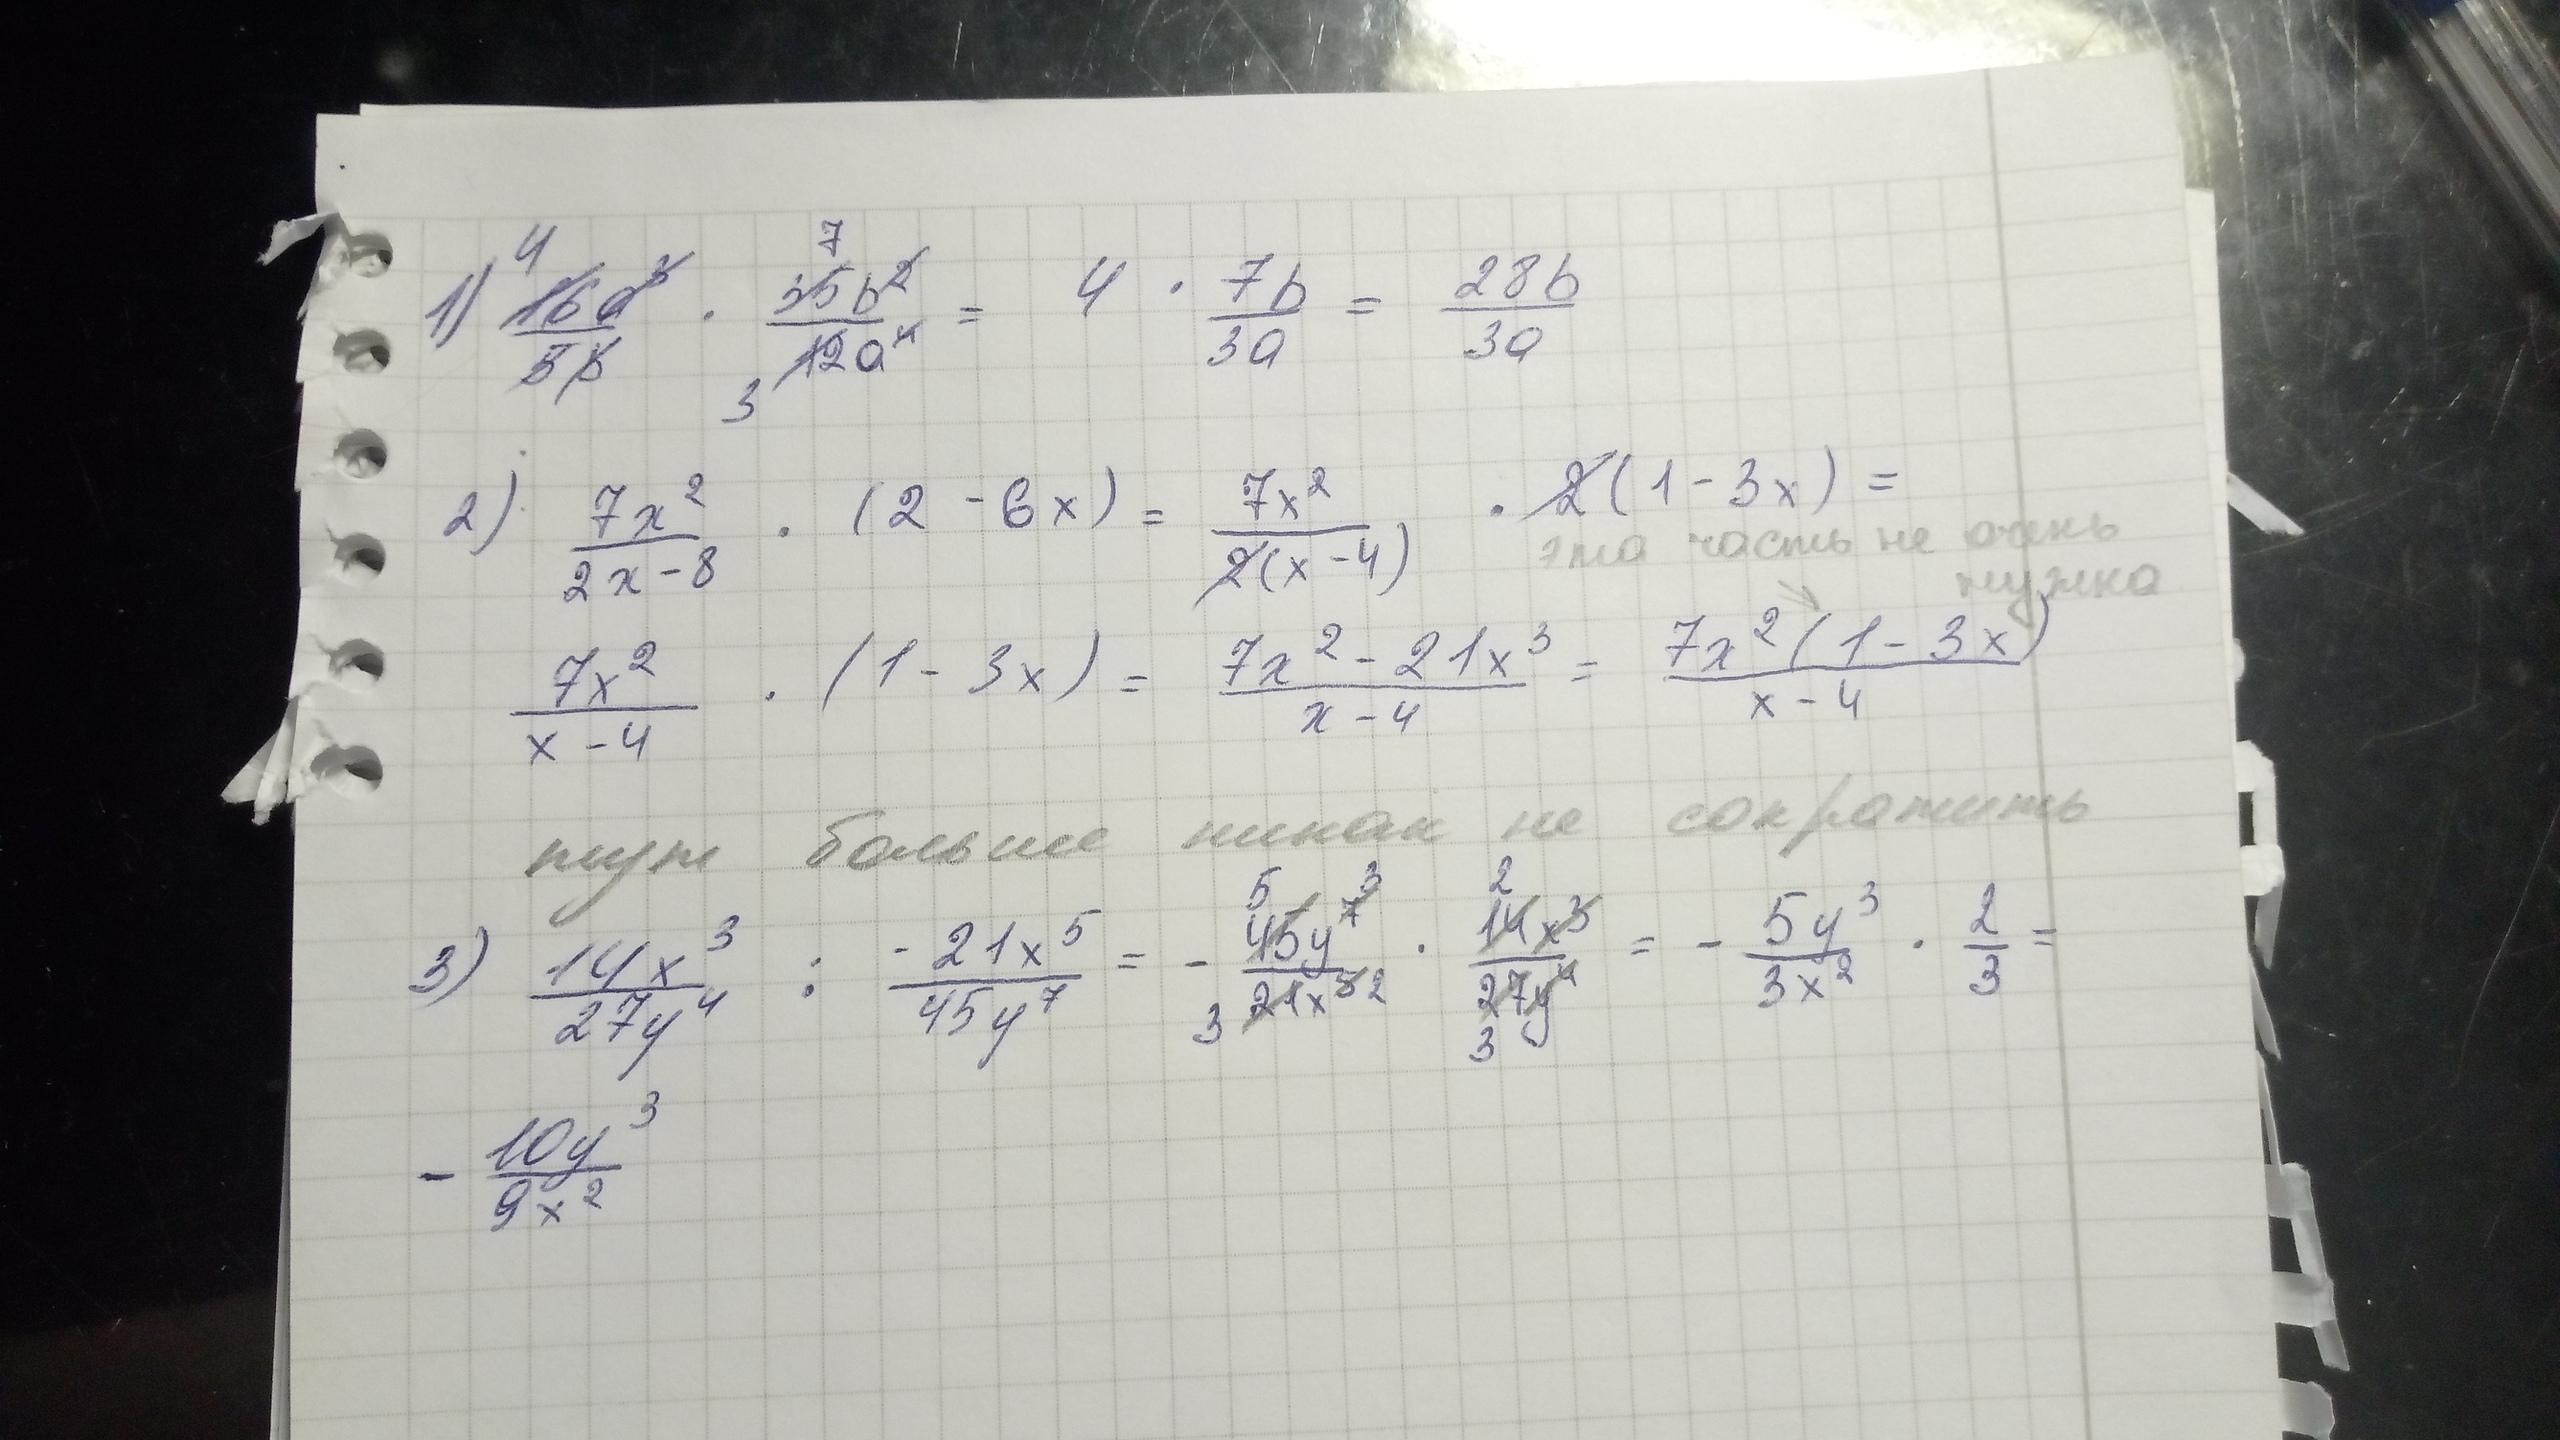 1) 16a³/5b · 35b²/12a⁴ = 4 · 7b/3a = 28b/3a
4 7 3
2) 7x²/(2x-8) · (2 - 6x) = 7x²/(2(x-4)) · 2(1-3x) =
эта часть не очень
нужна
7x²/(x-4) · (1-3x) = (7x²-21x³)/(x-4) = 7x²(1-3x)/(x-4)
тут больше никак не сократить
3) 14x³/27y⁴ : -21x⁵/45y⁷ = - 45y⁷/21x⁵ · 14x³/27y⁴ = - 5y³/3x² · 2/3 =
5 3 2 3 2 3
- 10y³/9x²